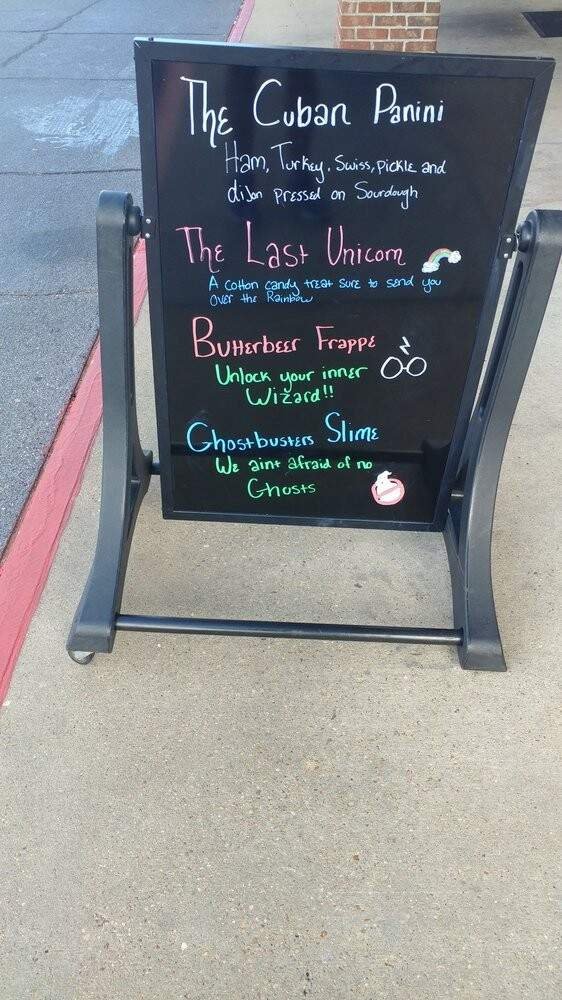 The Cuban Panini
Ham, Turkey, Swiss, pickle and
dijon pressed on Sourdough
The Last Unicorn
A cotton candy treat sure to send you
over the Rainbow
Butterbeer Frappe
Unlock your inner
Wizard!!
Ghostbusters Slime
We aint afraid of no
Ghosts